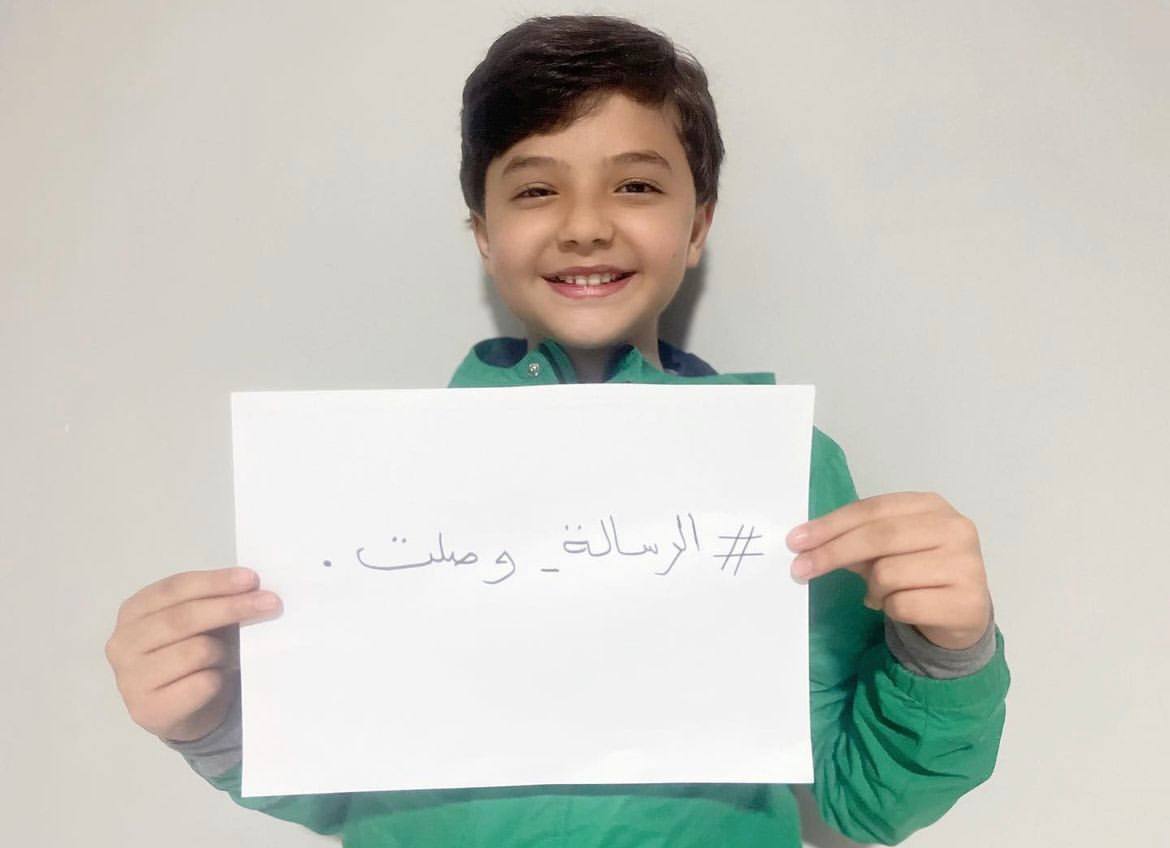 #الرسالة_وصلت.